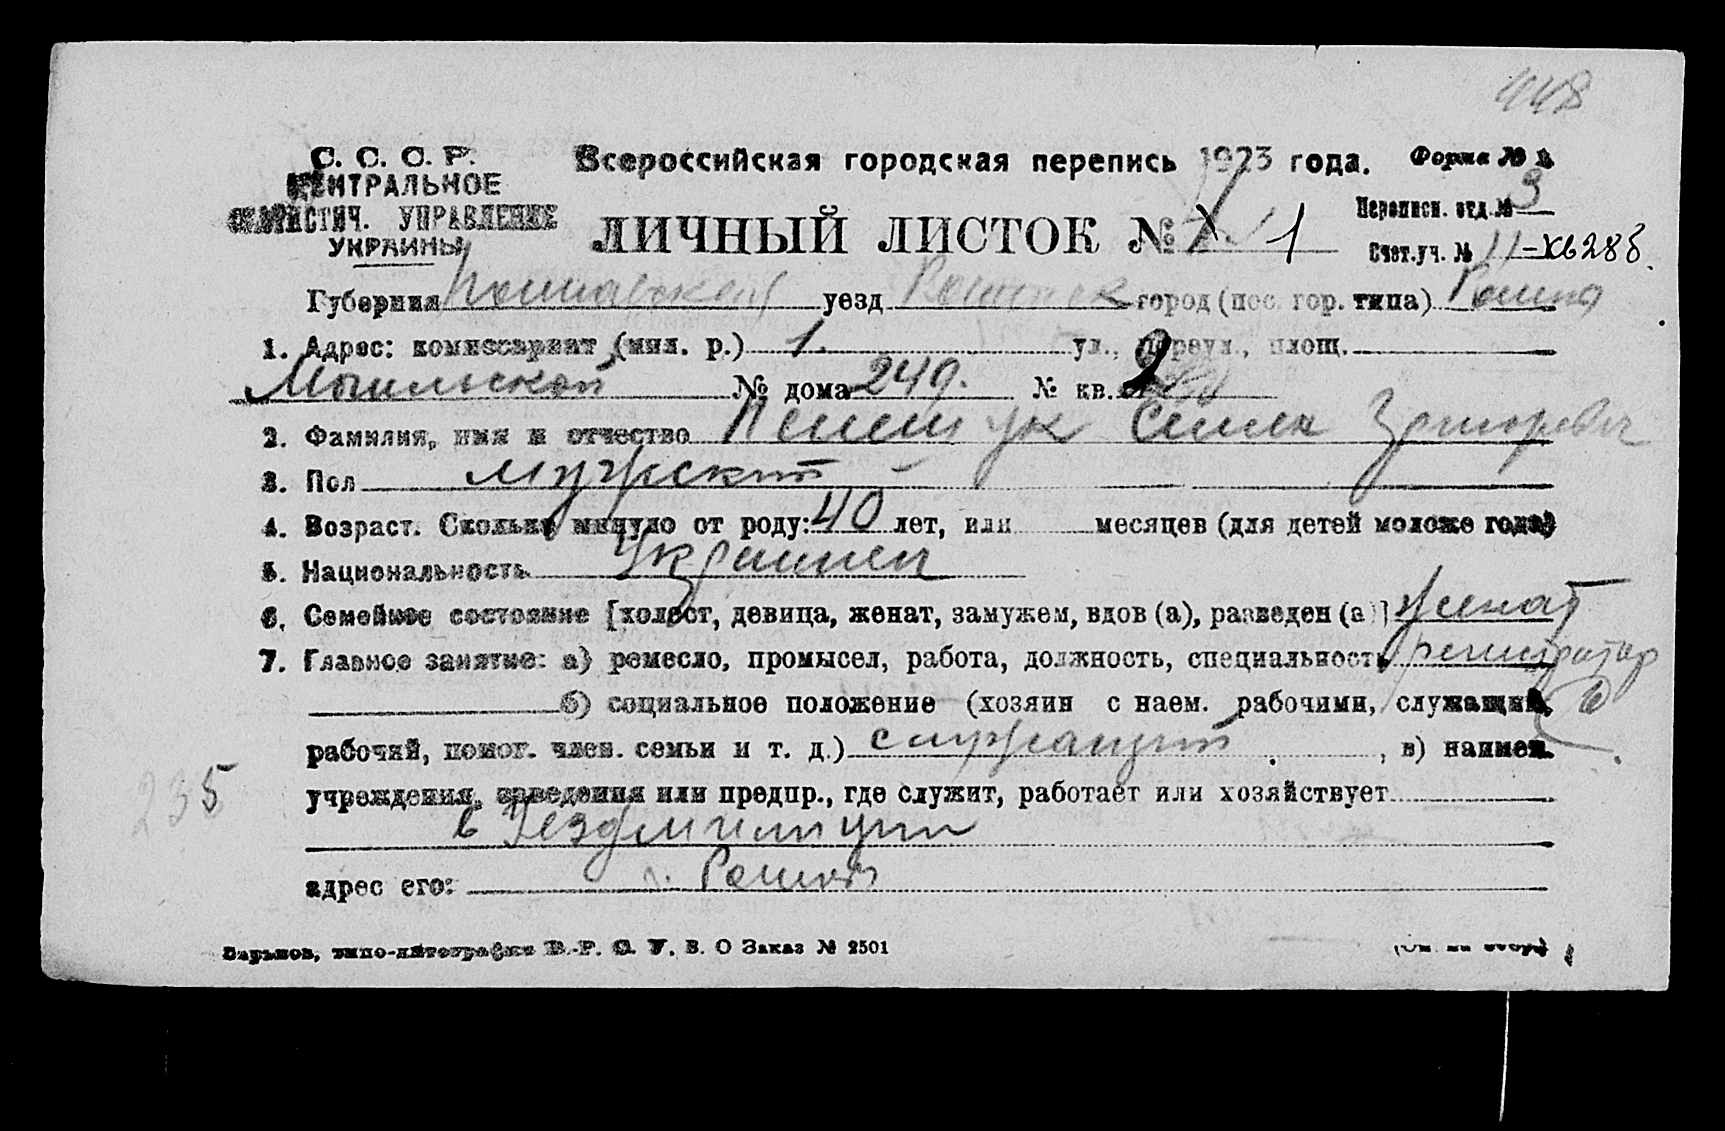 448
С. С. С. Р. Всероссийская городская перепись 1923 года. Форма № 
ЦЕНТРАЛЬНОЕ
СТАТИСТИЧ. УПРАВЛЕНИЕ
УКРАИНЫ
ЛИЧНЫЙ ЛИСТОК № 1
Переписн. отд. № 3
Счет. уч. № 11
Губерния Полтавской уезд город (пос. гор. типа)
1. Адрес: комиссариат (мил. р.) 1. ул., переул., площ.
№ дома 249. № кв. 2
2. Фамилия, имя и отчество Семен Григорьевич
3. Пол мужской
4. Возраст. Сколько минуло от роду: 40 лет, или месяцев (для детей моложе года)
5. Национальность Украинец
6. Семейное состояние [холост, девица, женат, замужем, вдов (а), разведен (а)] женат
7. Главное занятие: а) ремесло, промысел, работа, должность, специальность регистратор
б) социальное положение (хозяин с наем. рабочими, служащий,
рабочий, помог. член. семьи и т. д.) служащий, в) наимен.
235
учреждения, заведения или предпр., где служит, работает или хозяйствует
в Уездмилиции
адрес его:
Харьков, типо-литография В. О Заказ № 2501